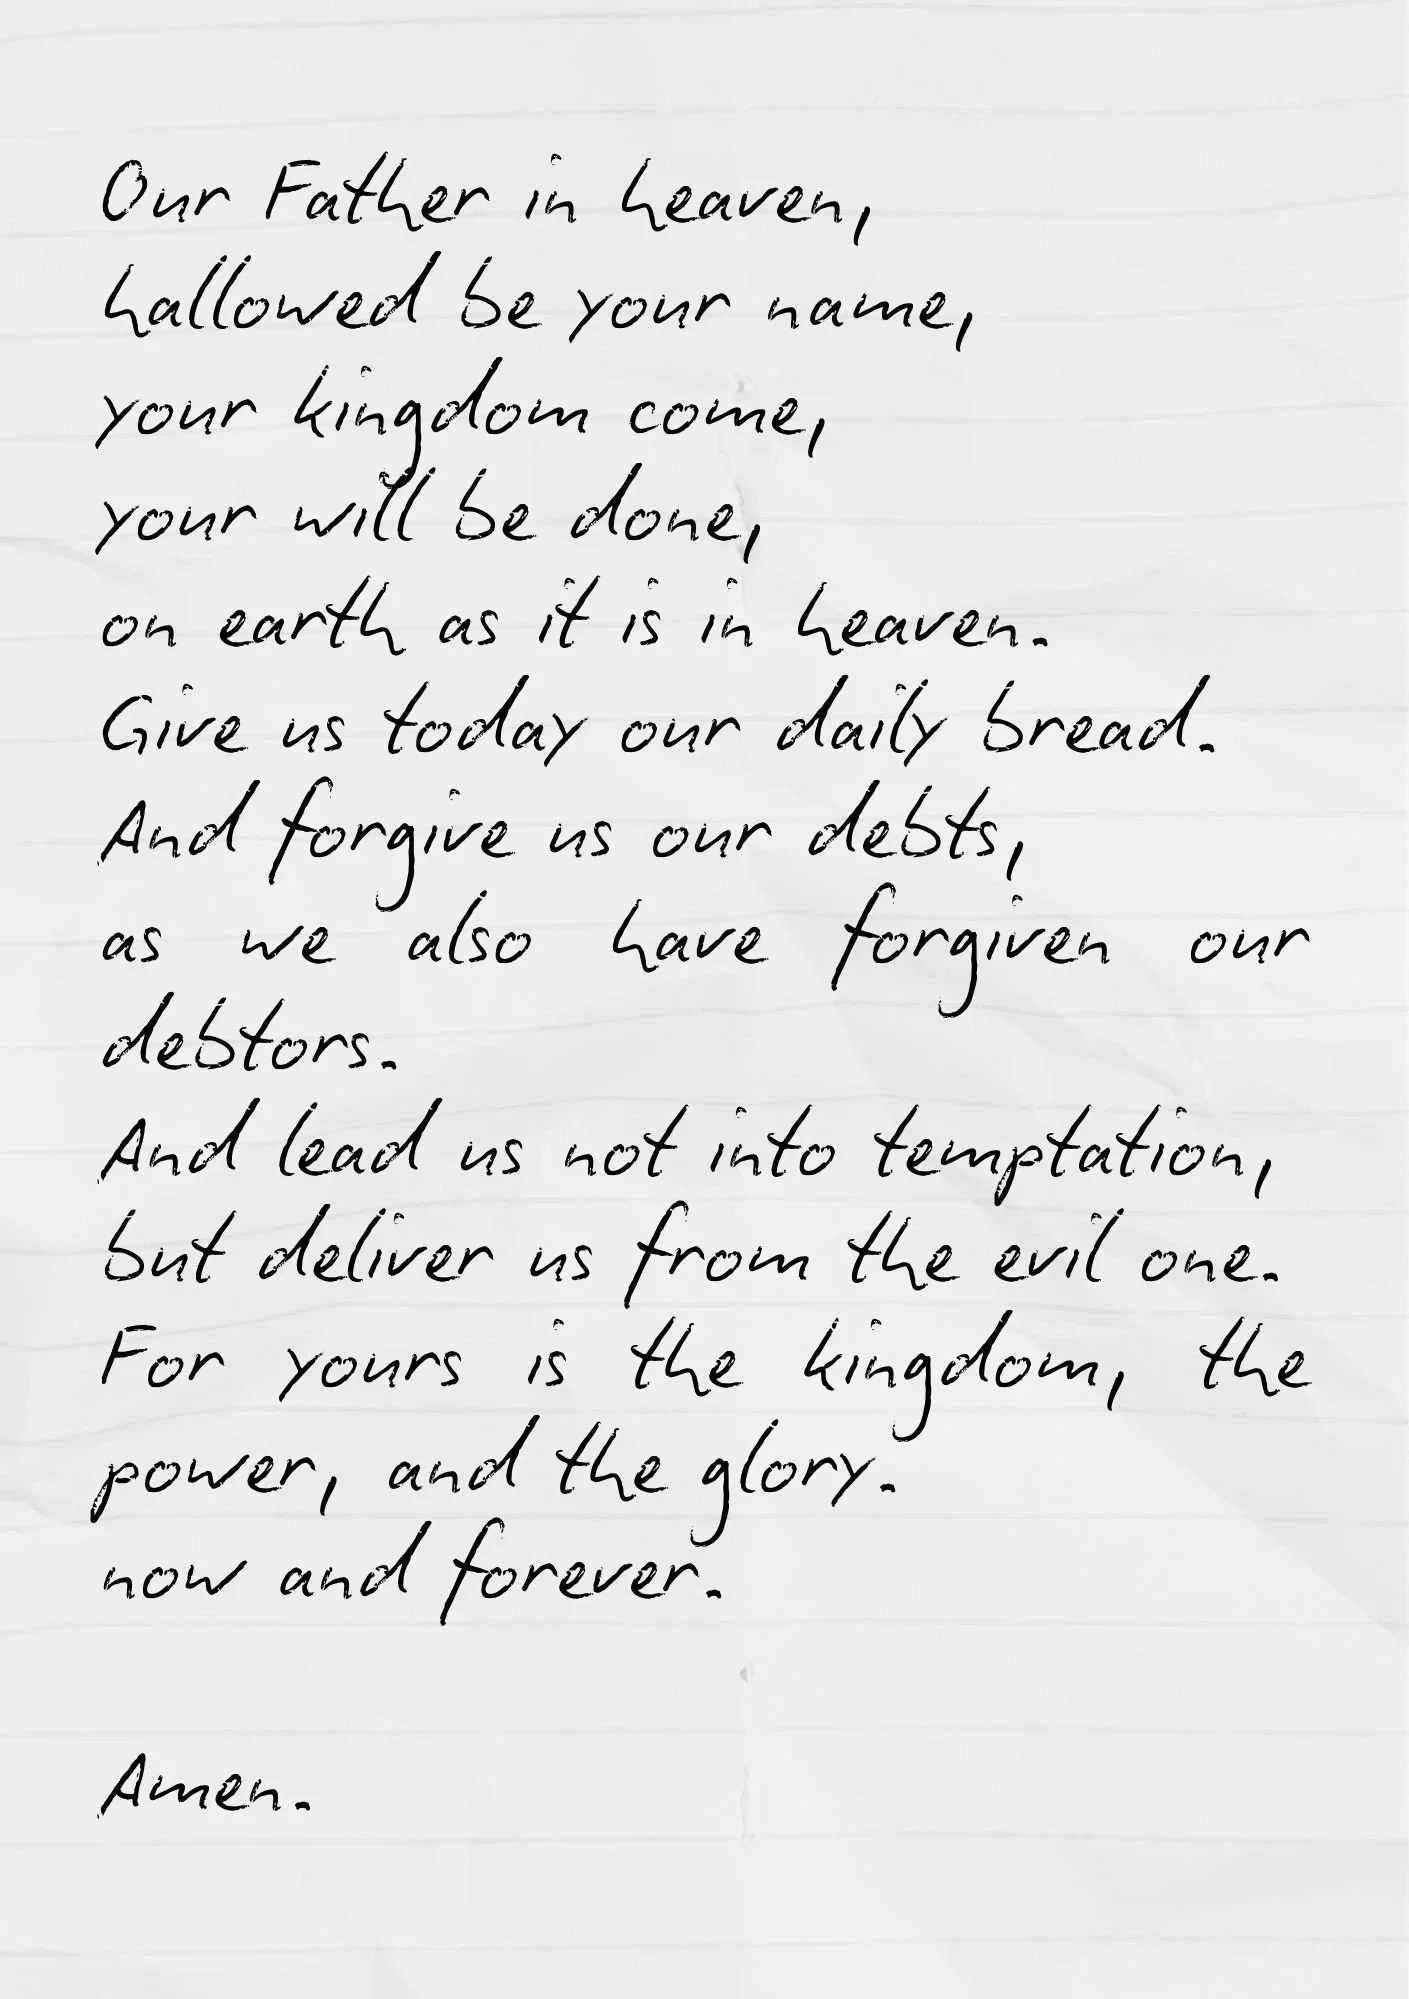 Our Father in heaven,
hallowed be your name,
your kingdom come,
your will be done,
on earth as it is in heaven.
Give us today our daily bread.
And forgive us our debts,
as we also have forgiven our
debtors.
And lead us not into temptation,
but deliver us from the evil one.
For yours is the kingdom, the
power, and the glory.
now and forever.
Amen.